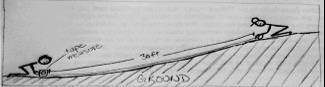 tape
measure
30ft
GROUND